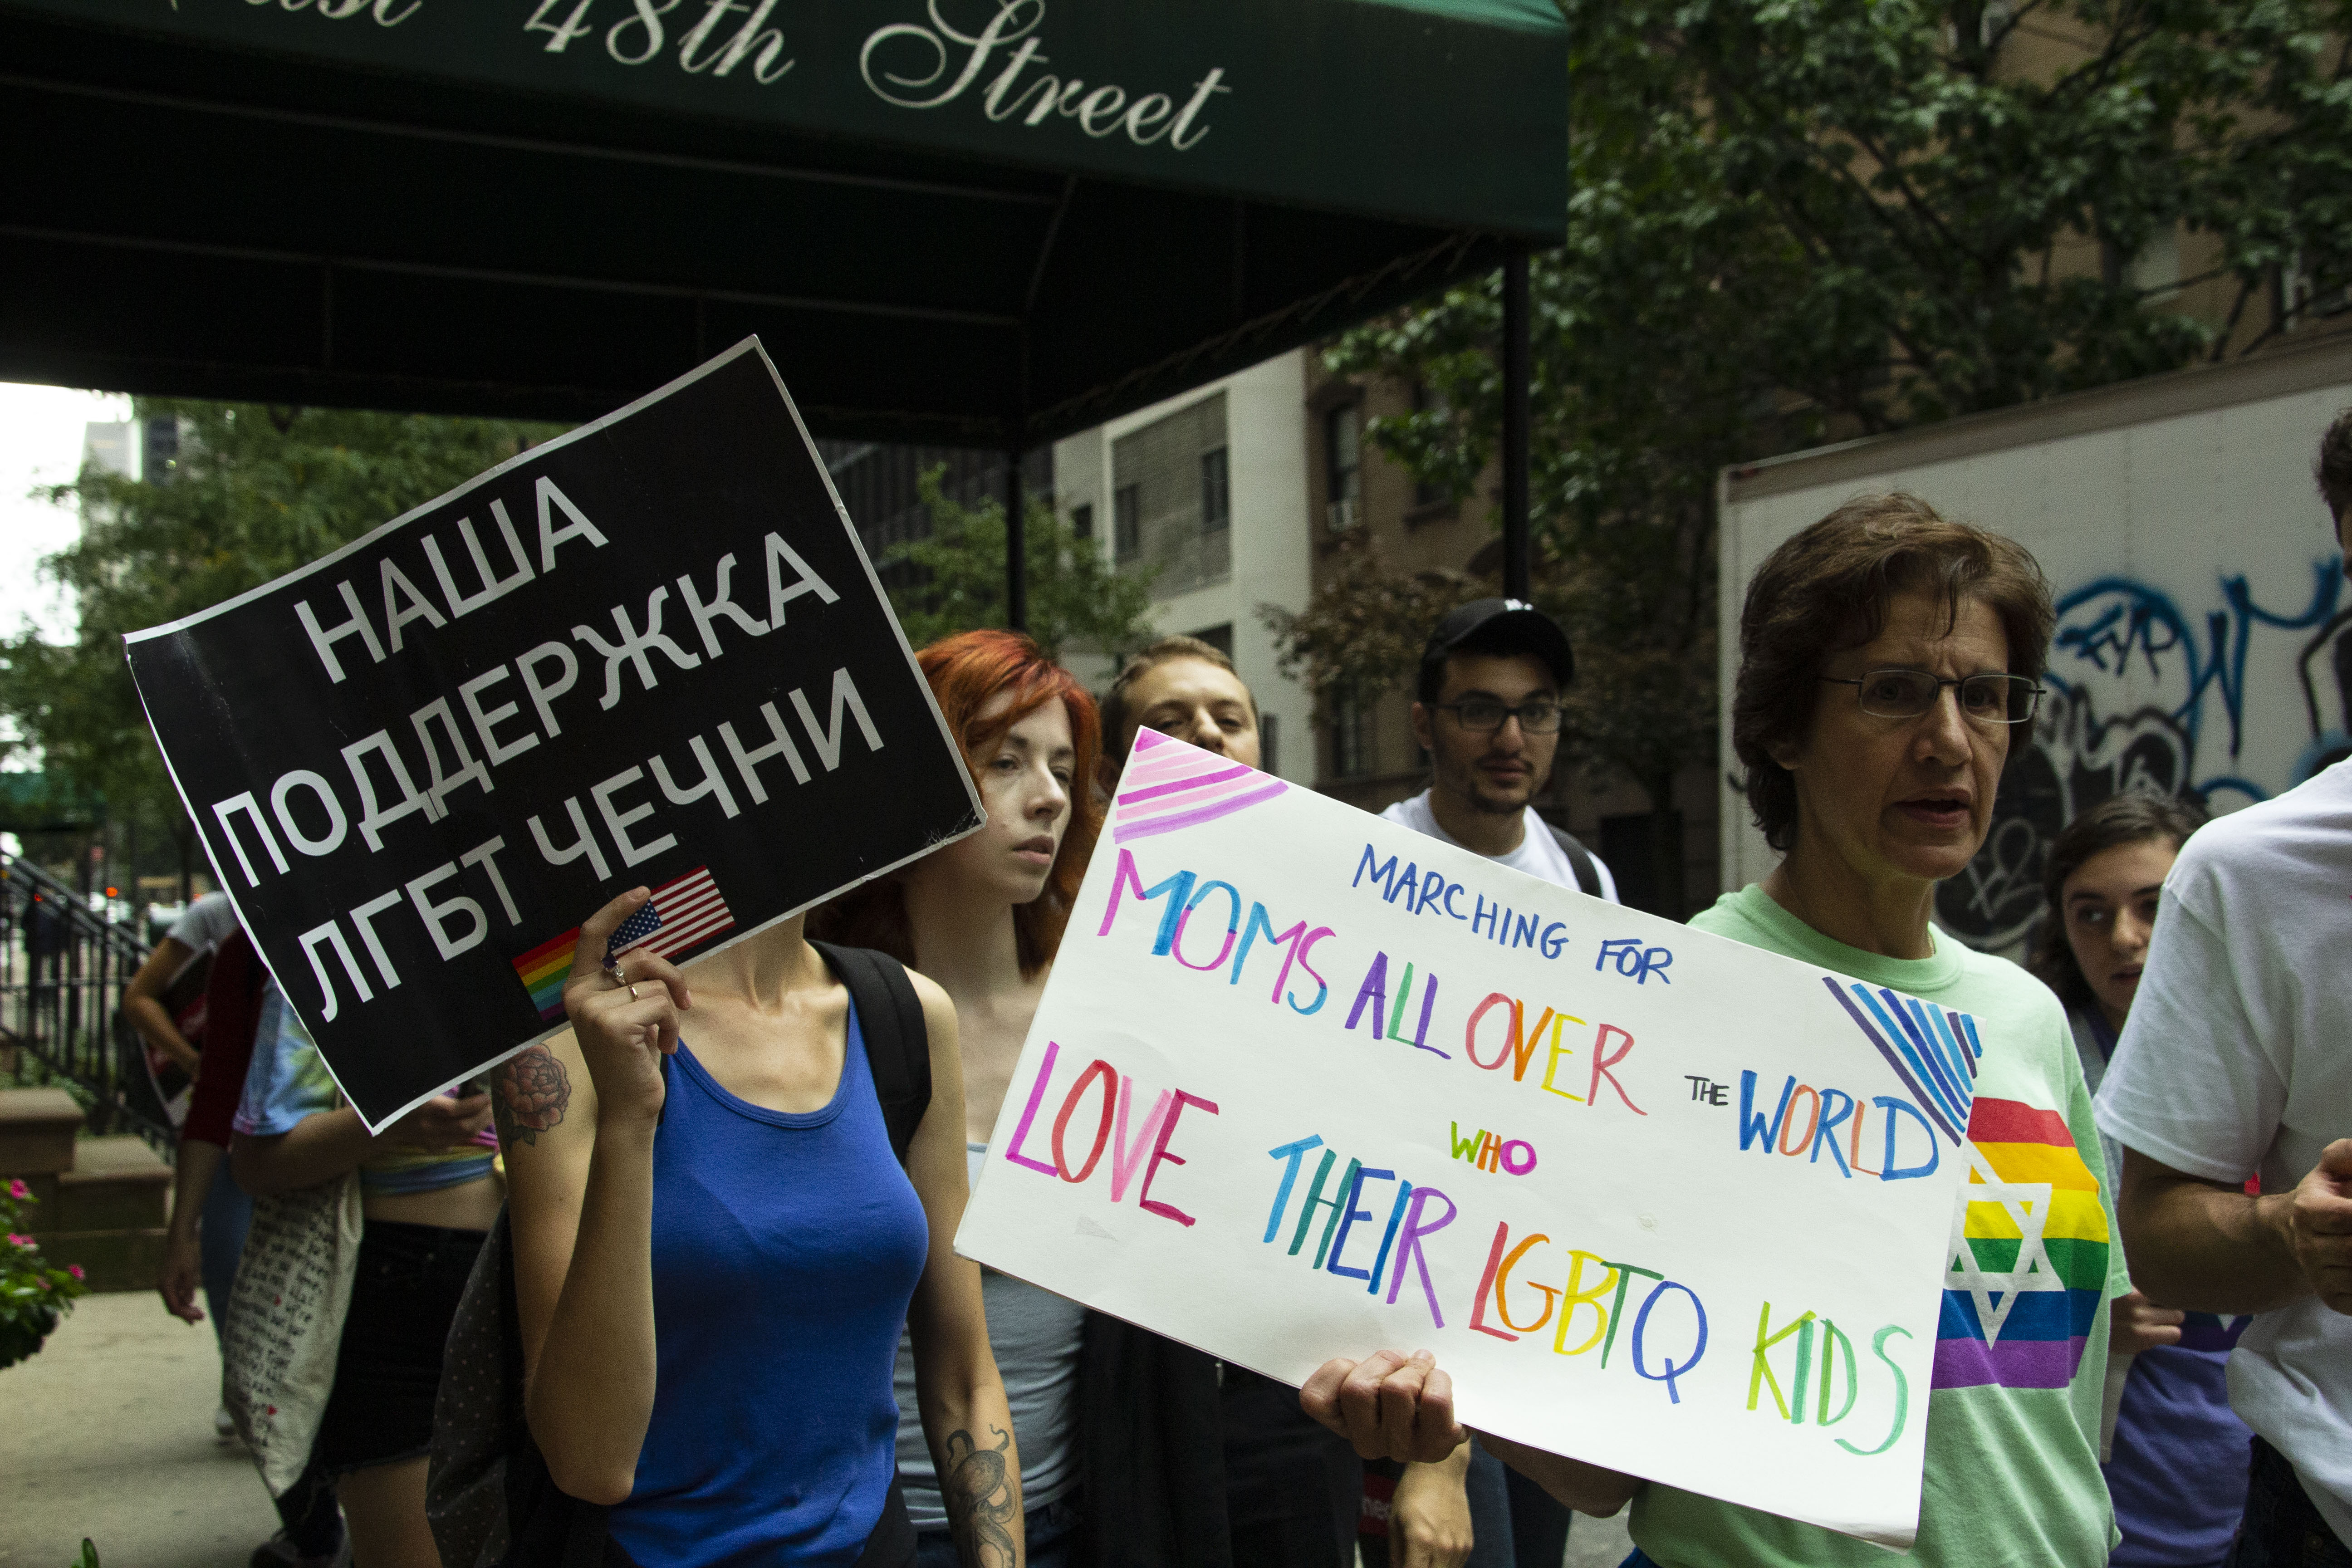 48th Street
НАША
ПОДДЕРЖКА
ЛГБТ ЧЕЧНИ
MARCHING FOR
MOMS ALL OVER THE WORLD
WHO
LOVE THEIR LGBTQ KIDS